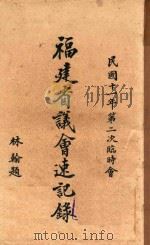 民國十一年第二次臨時會
福建省議會速記錄
林翰題